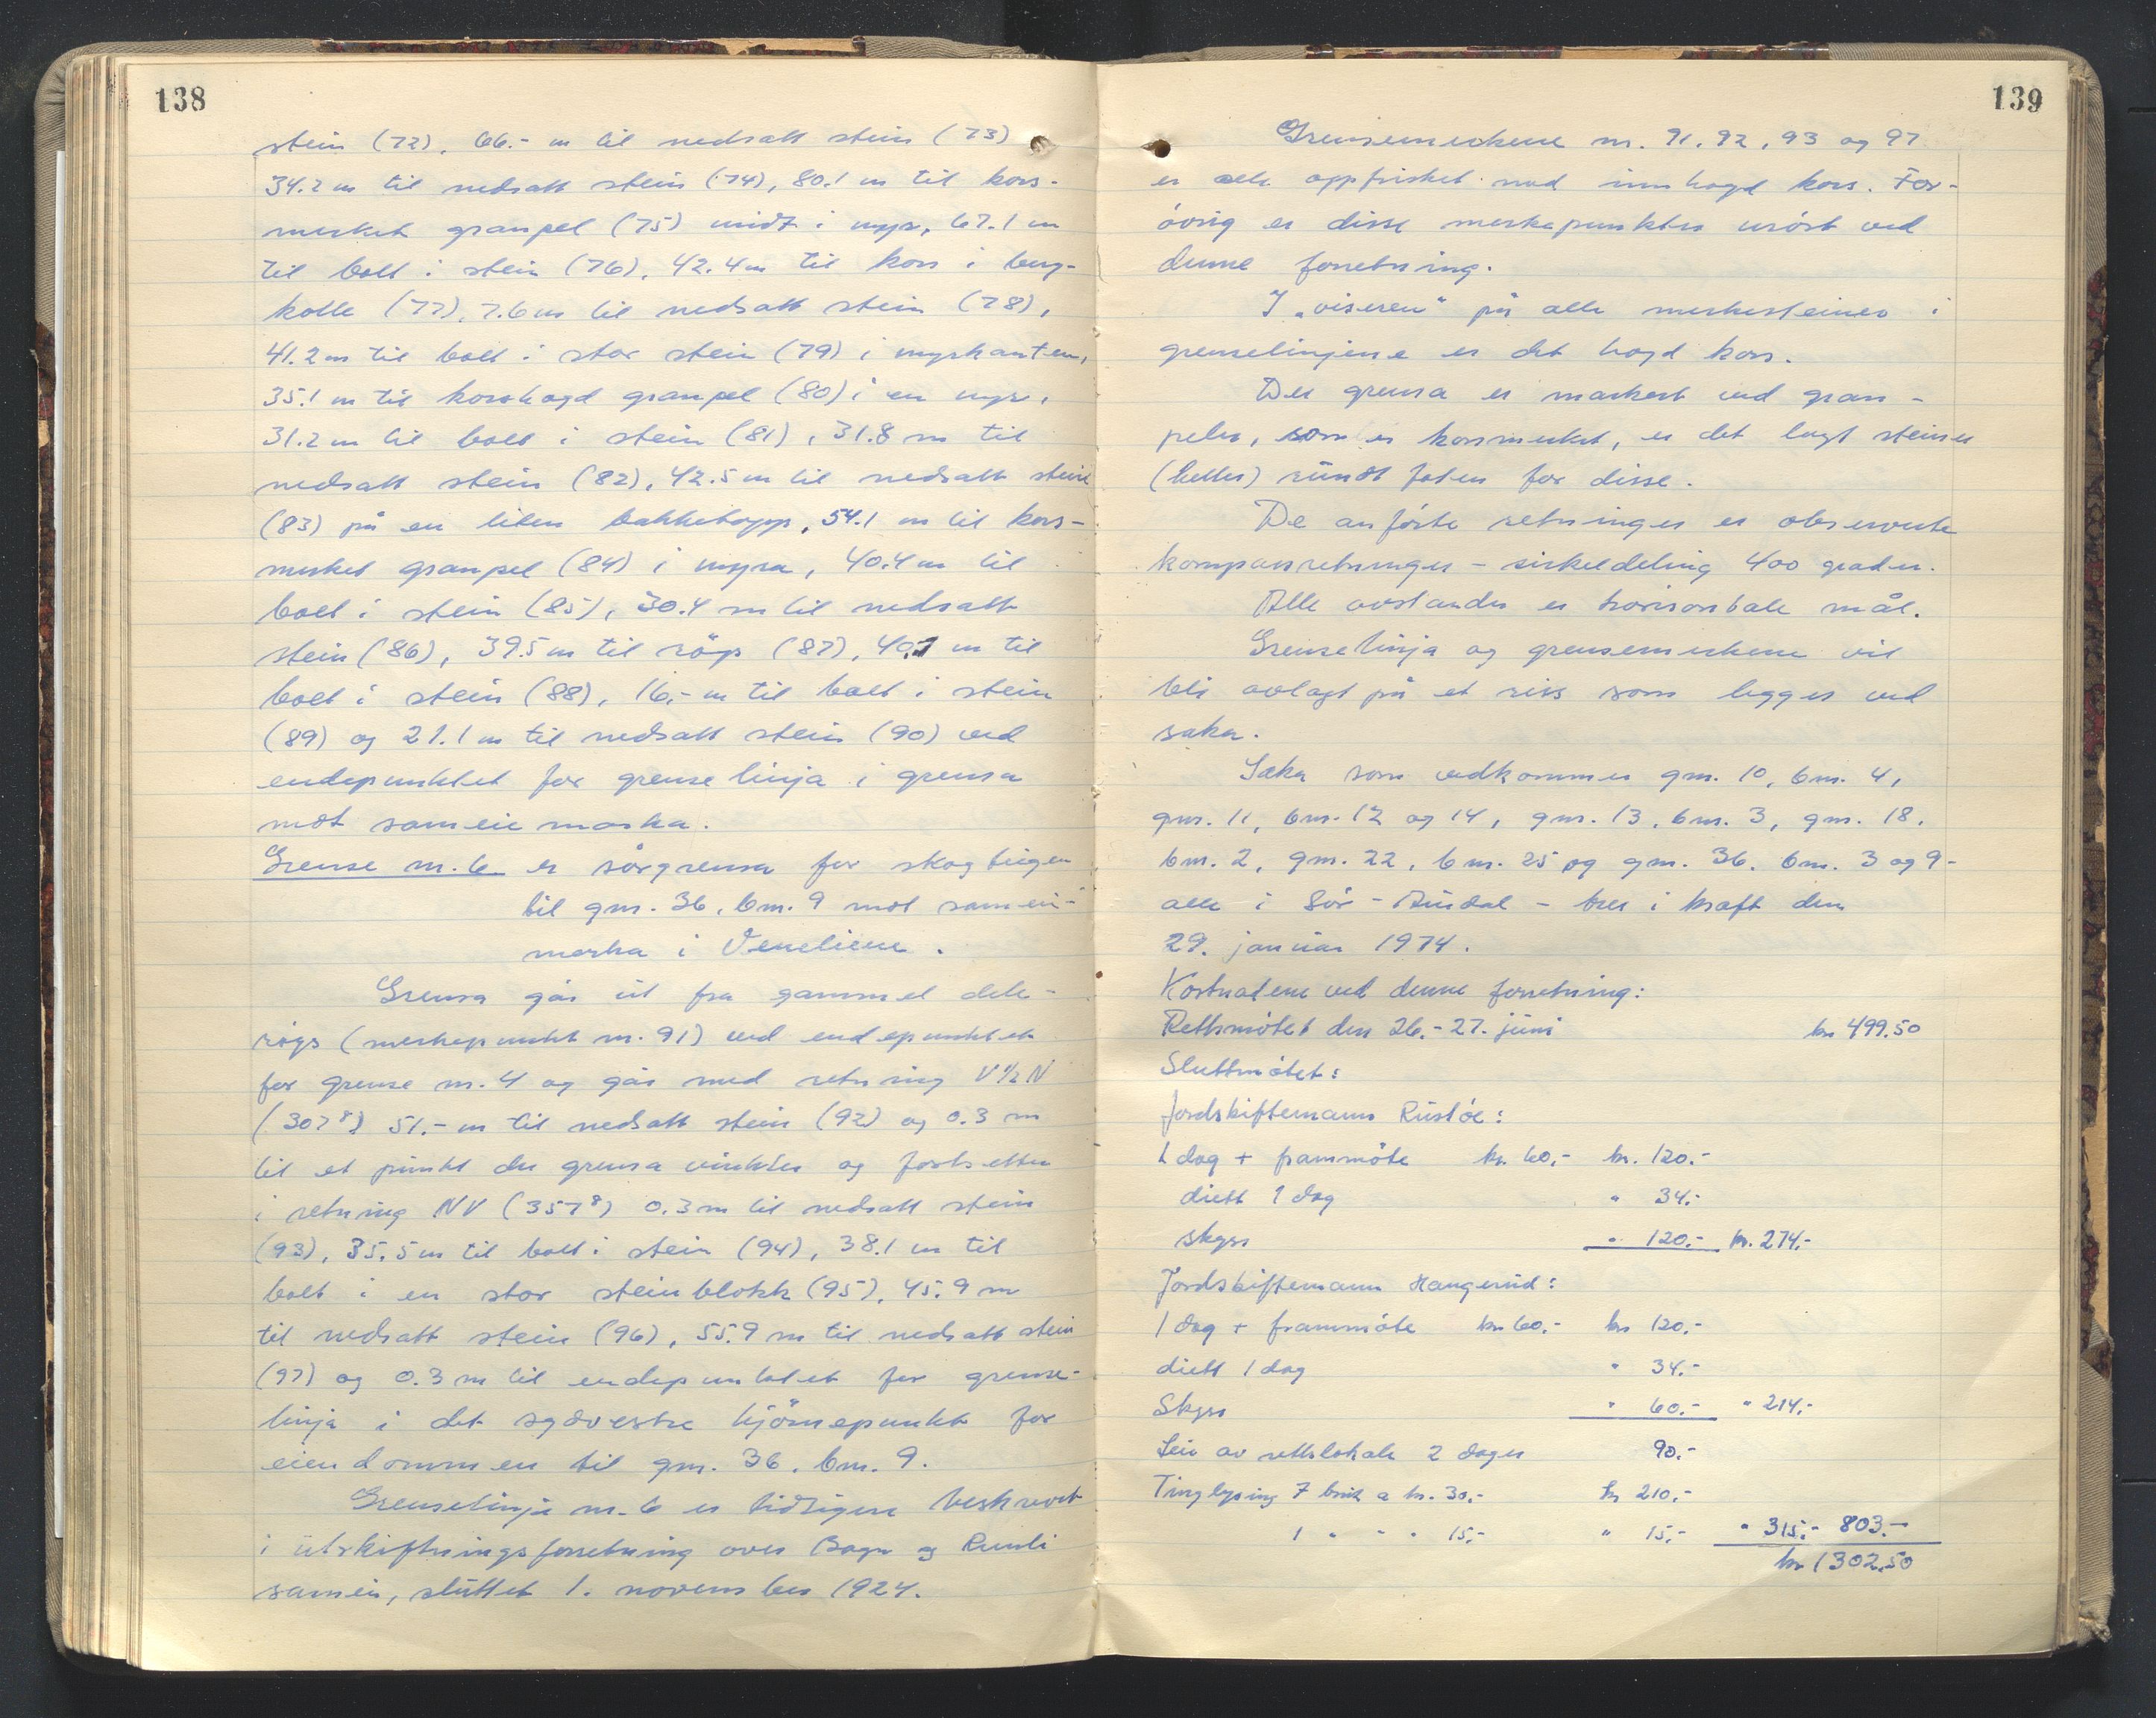 138
stein (72), 66.- m til nedsatt stein (73)
34.2 m til nedsatt stein (74), 80.1 m til kors-
merket granpel (75) midt i myr, 67.1 m
til bolt i stein (76), 42.4 m til kors i berg-
kolle (77), 7.6 m til nedsatt stein (78),
41.2 m til bolt i stor stein (79) i myrkanten,
35.1 m til korshogd granpel (80) i en myr,
31.2 m til bolt i stein (81), 31.8 m til
nedsatt stein (82), 42.5 m til nedsatt stein
(83) på en liten bakketopp, 54.1 m til kors-
merket granpel (84) i myra, 40.4 m til
bolt i stein (85), 30.4 m til nedsatt
stein (86), 39.5 m til röys (87), 40.1 m til
bolt i stein (88), 16,- m til bolt i stein
(89) og 21.1 m til nedsatt stein (90) ved
endepunktet for grenselinja i grensa
mot sameiemarka.
Grense nr. 6 er sörgrensa for skogteigen
til gnr. 36, bnr. 9 mot samei-
marka i Veneliene.
Grensa går ut fra gammel dele-
röys (merkepunkt nr. 91) ved endepunktet
for grense nr. 4 og går med retning V 1/2 N
(307⁸) 51.- m til nedsatt stein (92) og 0.3 m
til et punkt der grensa vinkler og fortsetter
i retning NV (357⁸) 0.3 m til nedsatt stein
(93), 35.5 m til bolt i stein (94), 38.1 m til
bolt i en stor steinblokk (95), 45.9 m
til nedsatt stein (96), 55.9 m til nedsatt stein
(97) og 0.3 m til endepunktet for grense-
linja i det sydvestre hjörnepunkt for
eiendommen til gnr. 36, bnr. 9.
Grenselinje nr. 6 er tidligere beskrevet
i utskiftningsforretning over Bagn og Reinli
sameie, sluttet 1. november 1924.
139
Grensemerkene nr. 91, 92, 93 og 97
er alle oppfrisket med innhogd kors. For-
övrig er disse merkepunkter urört ved
denne forretning.
I „viseren" på alle merkesteiner i
grenselinjene er det hogd kors.
Der grensa er markert ved gran-
peler, som er korsmerket, er det lagt steiner
(heller) rundt foten for disse.
De anförte retninger er observerte
kompassretninger - sirkeldeling 400 grader.
Alle avstander er horisontale mål.
Grenselinja og grensemerkene vil
bli avlagt på et riss som legges ved
saka.
Saka som vedkommer gnr. 10, bnr. 4,
gnr. 11, bnr. 12 og 14, gnr. 13, bnr. 3, gnr. 18,
bnr. 2, gnr. 22, bnr. 25 og gnr. 36, bnr. 3 og 9 -
alle i Sör-Aurdal - trer i kraft den
29. januar 1974.
Kostnadene ved denne forretning:
Rettsmötet den 26.- 27. juni kr 499.50
Sluttmötet:
Jordskiftemann Rustöe:
1 dag + frammöte kr. 60,- kr. 120.-
diett 1 dag " 34.-
skyss " 120.- kr. 274.-
Jordskiftemann Haugerud:
1 dag + frammöte kr 60.- kr 120.-
diett 1 dag " 34.-
Skyss " 60.- " 214.-
Leie av rettslokale 2 dager 90.-
Tinglysing 7 bruk a kr. 30.- kr 210.-
1 " - " 15.- " 15.- " 315.- 803.-
kr 1302.50